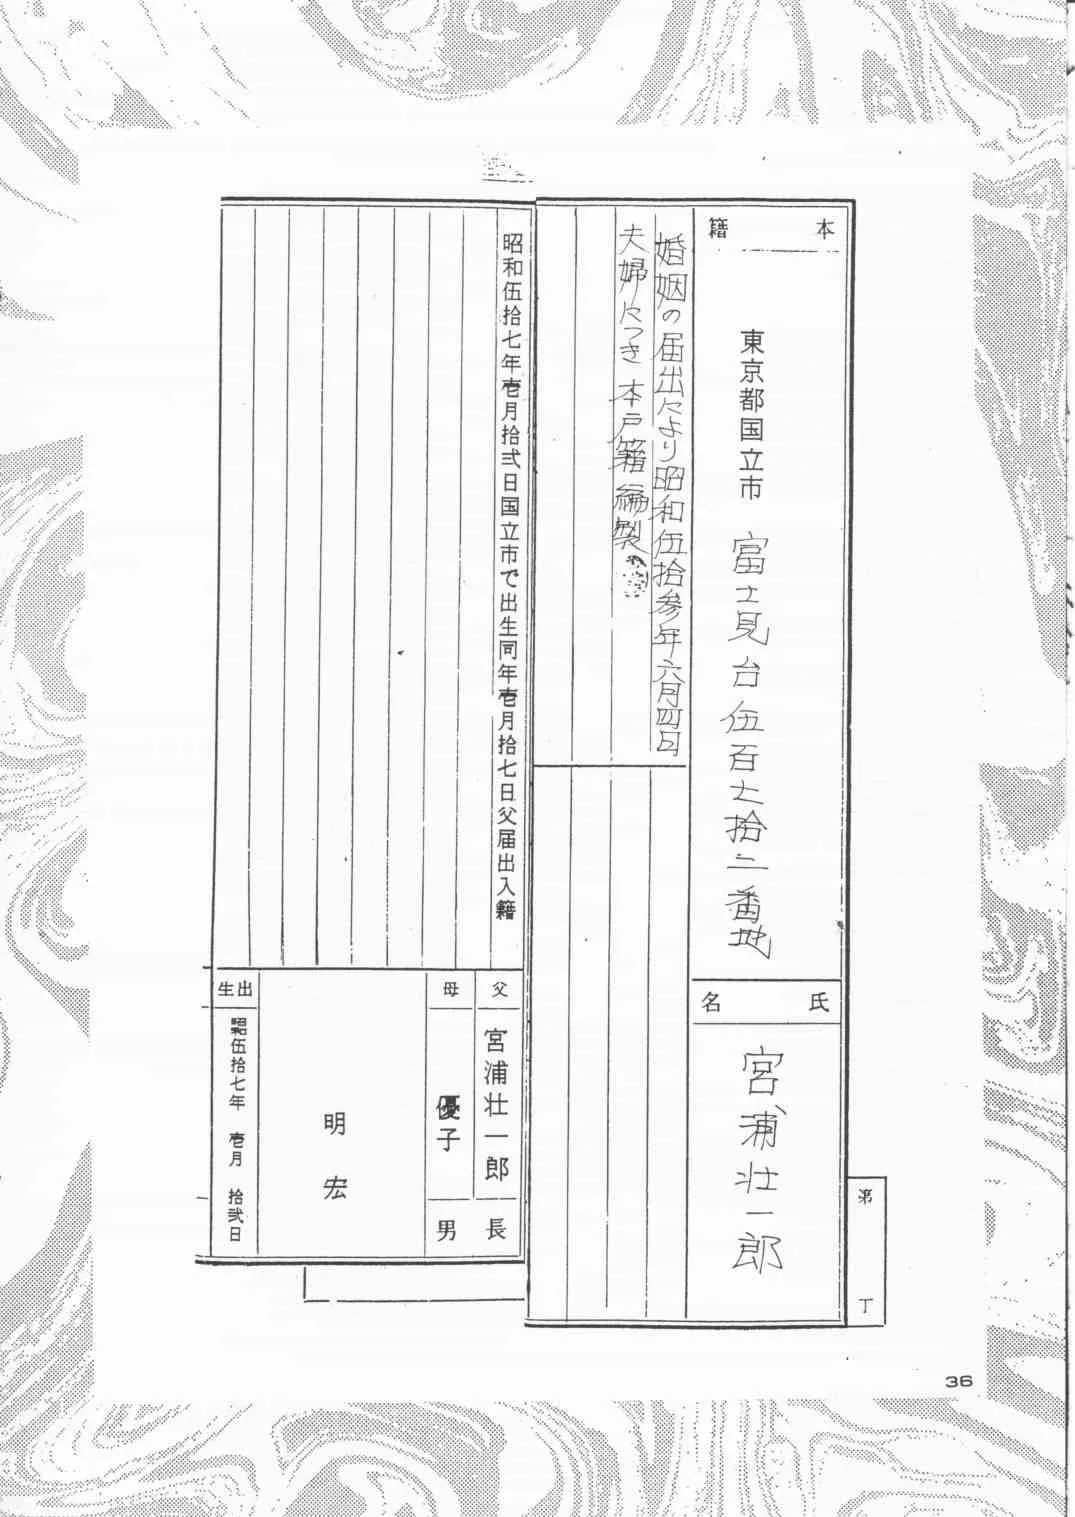 本籍
東京都国立市 富士見台伍百七拾二番地
氏名
宮浦壮一郎
第 丁
婚姻の届出により昭和伍拾参年六月四日
夫婦につき本戸籍編製
昭和伍拾七年壱月拾弐日国立市で出生同年壱月拾七日父届出入籍
父
宮浦壮一郎
母
優子
長男
明宏
出生
昭伍拾七年 壱月 拾弐日
36